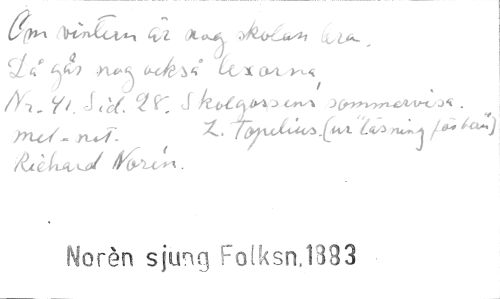 Om vintern är nog skolan bra.
Då går nog också lexorna,
Nr. 41. Sid. 28. Skolgossens sommarvisa.
mel-not. Z. Topelius. (ur "Läsning för barn")
Richard Norén.
Norèn sjung Folksn, 1883